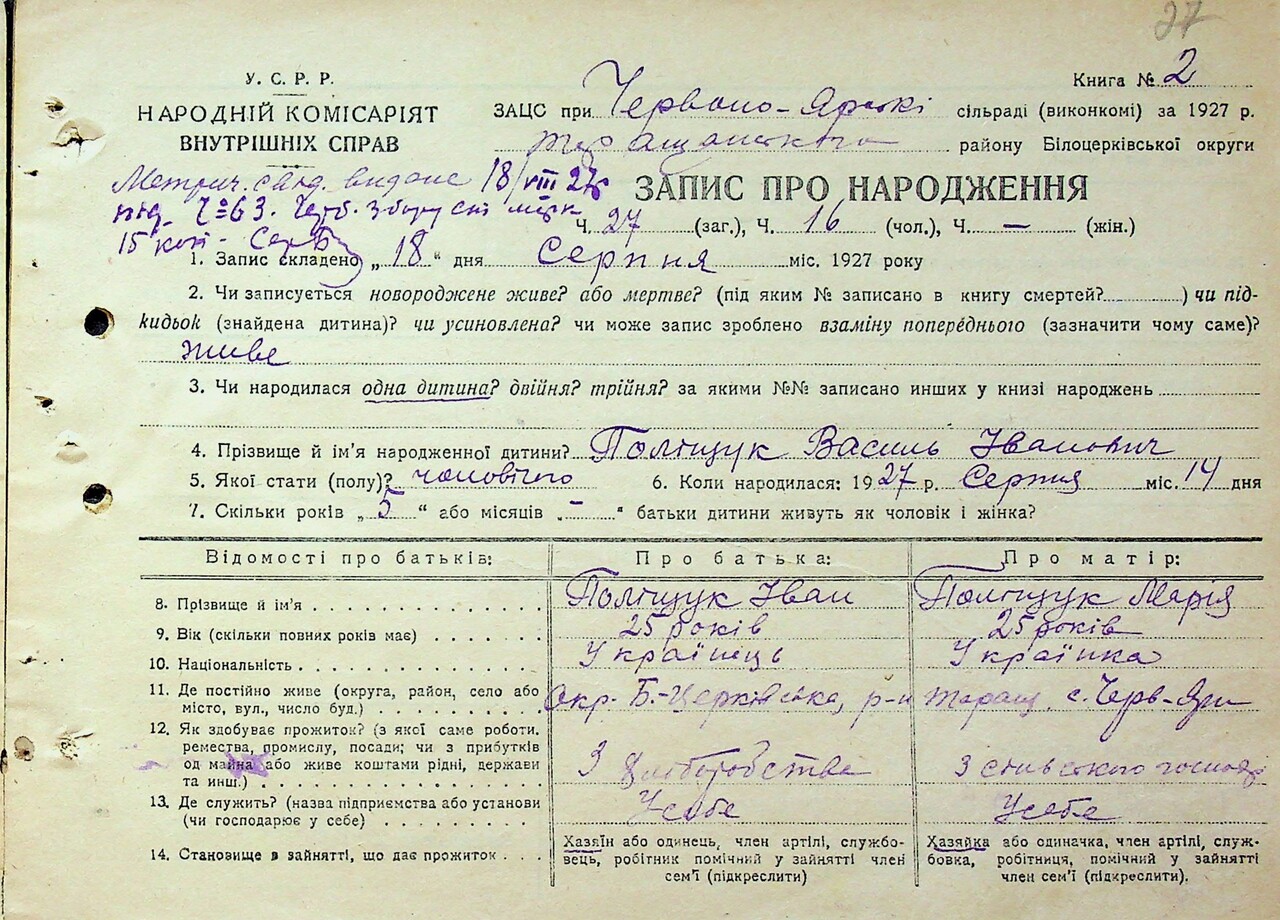 27
У. С. Р. Р.
НАРОДНІЙ КОМІСАРІЯТ
ВНУТРІШНІХ СПРАВ
Книга № 2
ЗАЦС при Червоно-Ярські сільраді (виконкомі) за 1927 р.
Таращанського району Білоцерківської округи
Метрич. видане 18/VIII 27
під Ч 63.
15 коп.
ЗАПИС ПРО НАРОДЖЕННЯ
Ч. 27 (заг.), Ч. 16 (чол.), Ч. — (жін.)
1. Запис складено „ 18 “ дня Серпня міс. 1927 року
2. Чи записується новороджене живе? або мертве? (під яким № записано в книгу смертей? ) чи під-
кидьок (знайдена дитина)? чи усиновлена? чи може запис зроблено взаміну попереднього (зазначити чому саме)?
живе
3. Чи народилася одна дитина? двійня? трійня? за якими №№ записано инших у книзі народжень
4. Прізвище й ім'я народженної дитини? Поліщук Василь Іванович
5. Якої стати (полу)? чоловічого 6. Коли народилася: 1927 р. Серпня міс. 14 дня
7. Скільки років „ 5 “ або місяців „ - “ батьки дитини живуть як чоловік і жінка?
Відомості про батьків: Про батька: Про матір:
8. Прізвище й ім'я Поліщук Іван Поліщук Марія
9. Вік (скільки повних років має) 25 років 25 років
10. Національність Українець Українка
11. Де постійно живе (округа, район, село або
місто, вул., число буд.) Окр. Б.-Церківська, р-н Таращ. с. Черв-Яри
12. Як здобуває прожиток? (з якої саме роботи.
ремества, промислу, посади; чи з прибутків
од майна або живе коштами рідні, держави
та инш.) З хліборобства З сільського господ
13. Де служить? (назва підприємства або установи
(чи господарює у себе) У себе У себе
14. Становище в зайнятті, що дає прожиток
Хазяїн або одинець, член артілі, службо-
вець, робітник помічний у зайнятті член
сем'ї (підкреслити)
Хазяйка або одиначка, член артілі, служ-
бовка, робітниця, помічний у зайнятті
член сем'ї (підкреслити).